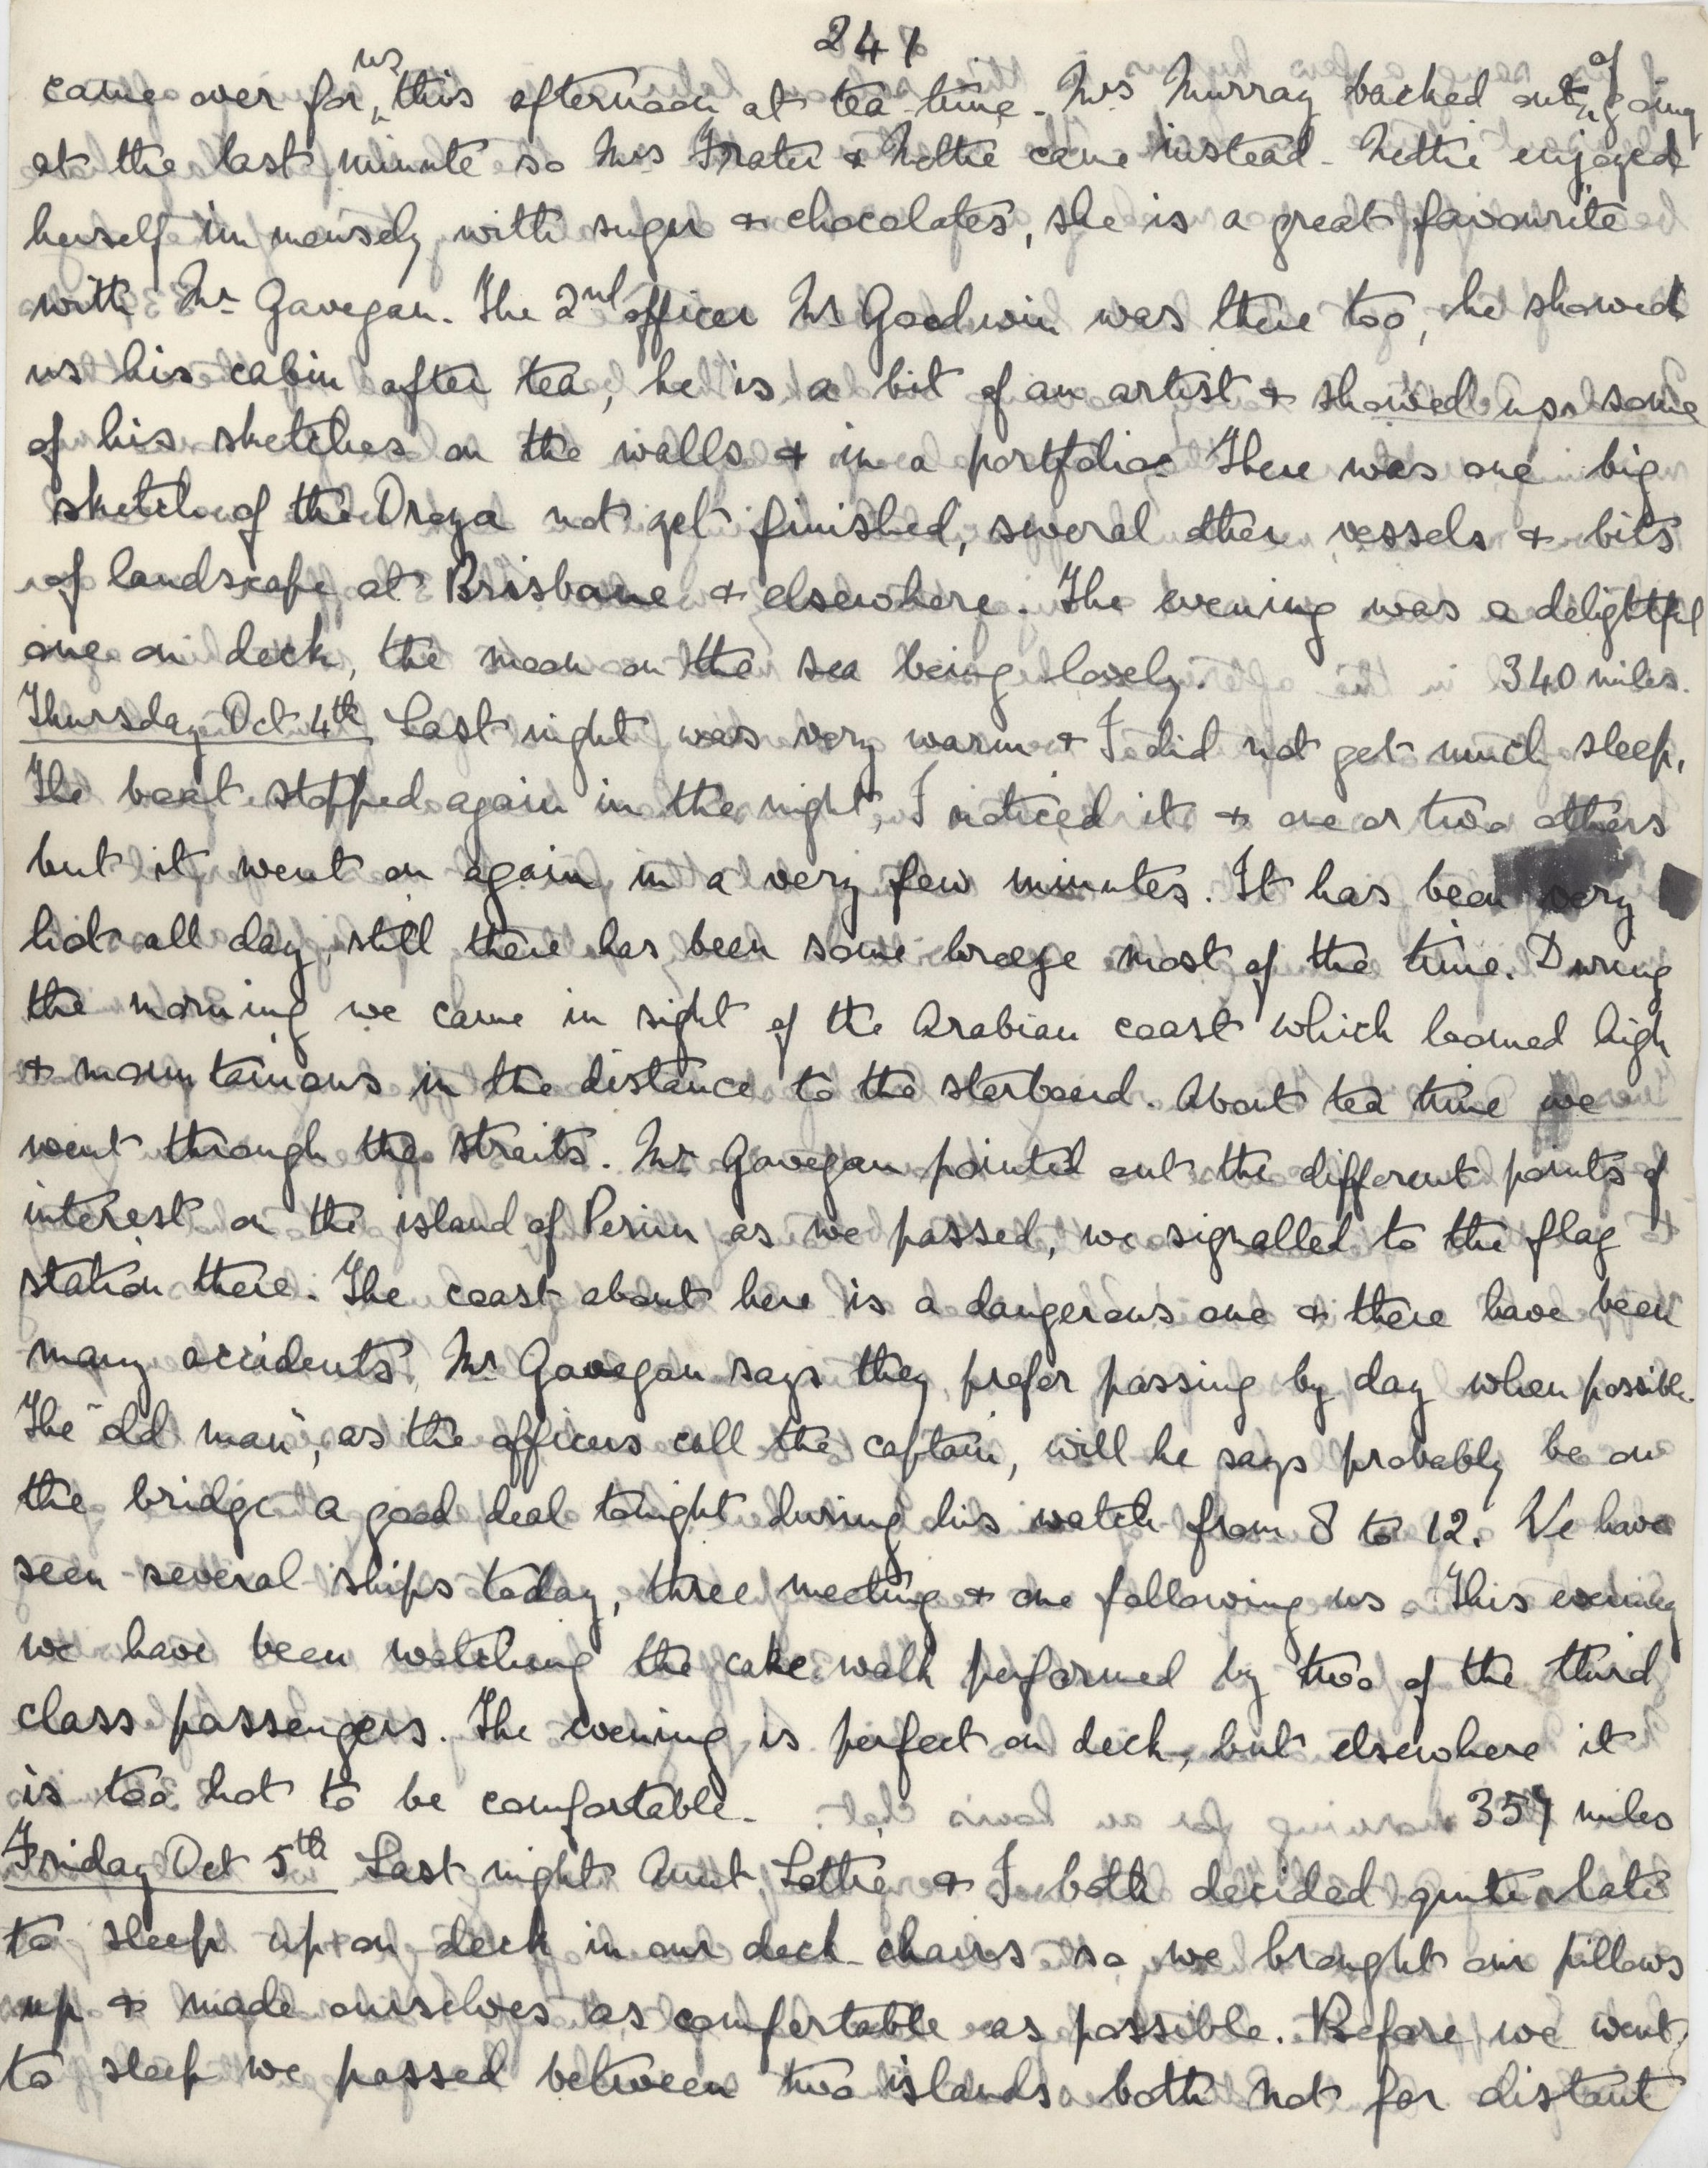 241
came over for us this afternoon at tea time. Mrs Murray backed out of going
at the last minute so Mrs Frater & Nettie came instead. Nettie enjoyed
herself immensely with sugar & chocolates, she is a great favourite
with Mr Gavegan. The 2nd officer Mr Goodwin was there too, he showed
us his cabin after tea, he is a bit of an artist & showed us some
of his sketches on the walls & in a portfolio. There was one big
sketch of the Oroya not yet finished, several other vessels & bits
of landscape at Brisbane & elsewhere. The evening was a delightful
one on deck, the moon on the sea being lovely. 340 miles.
Thursday Oct 4th Last night was very warm & I did not get much sleep.
The boat stopped again in the night, I noticed it & one or two others
but it went on again in a very few minutes. It has been very
hot all day, still there has been some breeze most of the time. During
the morning we came in sight of the Arabian coast which loomed high
& mountainous in the distance to the starboard. About tea time we
went through the straits. Mr Gavegan pointed out the different points of
interest on the island of Perim as we passed, we signalled to the flag
station there. The coast about here is a dangerous one & there have been
many accidents. Mr Gavegan says they prefer passing by day when possible.
The "old man", as the officers call the captain, will he says probably be on
the bridge a good deal tonight during his watch from 8 to 12. We have
seen several ships today, three meeting & one following us. This evening
we have been watching the cake walk performed by two of the third
class passengers. The evening is perfect on deck, but elsewhere it
is too hot to be comfortable. 357 miles
Friday Oct 5th Last night Aunt Lottie & I both decided quite late
to sleep up on deck in our deck chairs so we brought our pillows
up & made ourselves as comfortable as possible. Before we went
to sleep we passed between two islands both not far distant